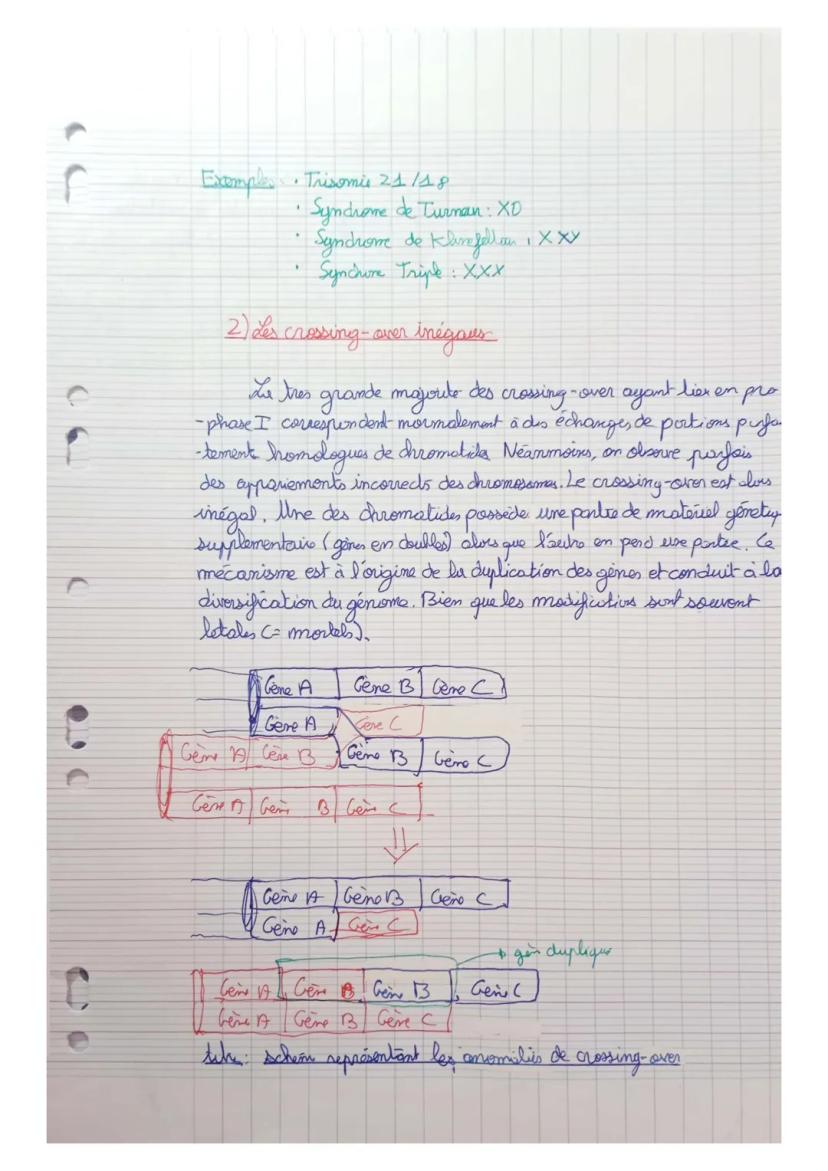 Exemples : • Trisomie 21/18
• Syndrome de Turnan : XO
• Syndrome de Klinefelter : XXY
• Synchure Triple : XXX
2) Les crossing-over inégaux
La tres grande majorite des crossing-over ayant lieu en pro
-phase I correspondent normalement à des échanges de portions parfa
-tement homologues de chromatides. Néanmoins, on observe parfois
des appariements incorrects des chromosomes. Le crossing-over est alors
inégal. Une des chromatides possède une partie de matériel génétiq
supplementaire (gènes en doubles) alors que l'autre en perd une partie. Ce
mécanisme est à l'origine de la duplication des gènes et conduit à la
diversification du génome. Bien que les modifications sont souvent
letales (= mortels).
Gène A Gène B Gène C
Gène A Gène C
Gène A Gène B Gène B Gène C
Gène A Gène B Gène C
Gène A Gène B Gène C
Gène A Gène C
→ gèn duplique
Gène A Gène B Gène B Gène C
Gène A Gène B Gène C
titre : schém représentant les anomaliés de crossing-over